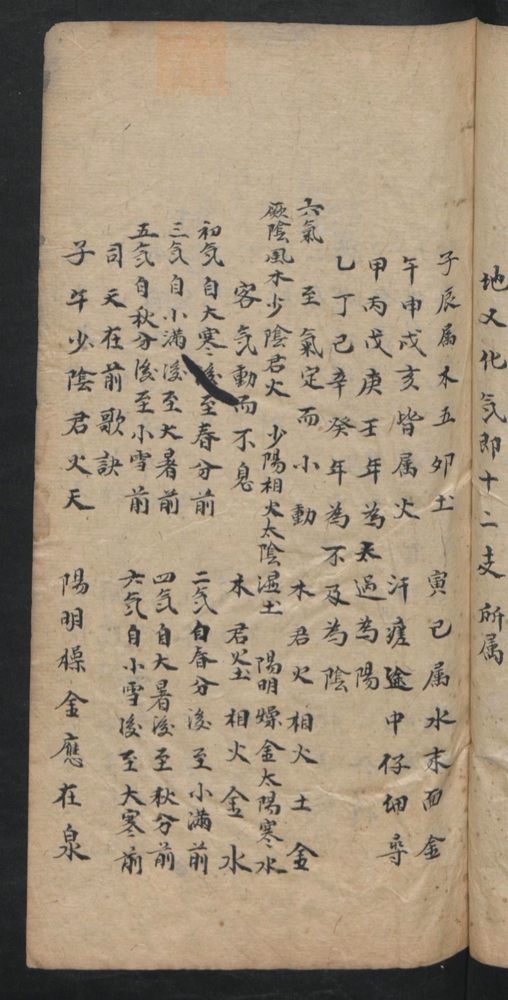 地又化气即十二支所属
子辰属木五夘土 寅巳属水末酉金
午申戌亥皆属火 汗瘧途中仔细尋
甲丙戊庚壬年為太過為陽
乙丁己辛癸年為不及為陰
六氣 至氣定而小動 木君火相火土金
厥陰風木少陰君火 少陽相火太陰湿土 陽明燥金太陽寒水
客气動而不息 木君火土相火金水
初气自大寒後至春分前 二气自春分後至小满前
三气自小满後至大暑前 四气自大暑後至秋分前
五气自秋分後至小雪前 六气自小雪後至大寒前
司天在前歌訣
子午少陰君火天 陽明燥金應在泉